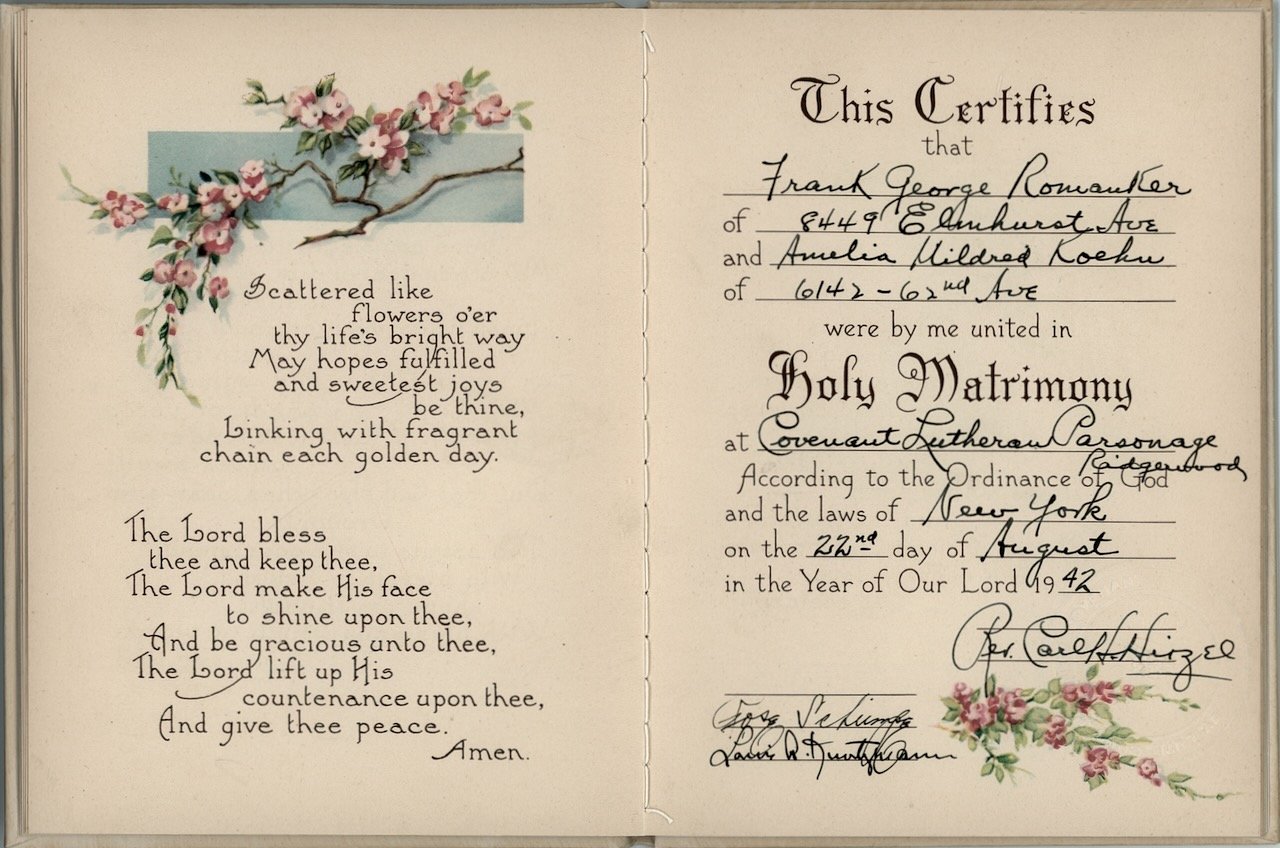 Scattered like
flowers o'er
thy life's bright way
May hopes fulfilled
and sweetest joys
be thine,
Linking with fragrant
chain each golden day.
The Lord bless
thee and keep thee,
The Lord make His face
to shine upon thee,
And be gracious unto thee,
The Lord lift up His
countenance upon thee,
And give thee peace.
Amen.
This Certifies
that
Frank George Romanker
of 8449 Elmhurst Ave
and Amelia Mildred Koehn
of 6142 - 62nd Ave
were by me united in
Holy Matrimony
at Covenant Lutheran Parsonage
Ridgewood
According to the Ordinance of God
and the laws of New York
on the 22nd day of August
in the Year of Our Lord 1942
Rev. Carl H. Hirzel